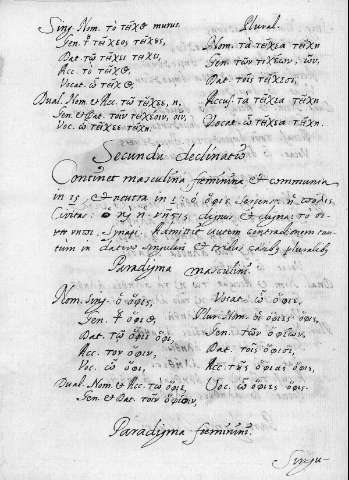 Sing. Nom. τὸ τεῖχος murus.
Gen. τείχεος τείχους,
Dat. τῷ τείχεϊ τείχει,
Acc. τὸ τεῖχος,
Vocat. ὦ τεῖχος,
Dual. Nom. et Acc. τὼ τείχεε, η,
Gen. et Dat. τοῖν τειχέοιν, οῖν,
Voc. ὦ τείχεε τείχη.
Plural.
Nom. τὰ τείχεα τείχη
Gen. τῶν τειχέων, ῶν,
Dat. τοῖς τείχεσι,
Accus. τὰ τείχεα τείχη
Vocat. ὦ τείχεα τείχη.
Secunda declinatio
Continet masculina fœminina et communia
in ις et neutra in ι: ὁ ὄφις serpens: ἡ πόλις
Civitas: ὁ
Sinapi. Admittit autem contractionem tan-
tum in dativo singulari et tribus casibus pluralib.
Paradigma masculini.
Nom. Sing. ὁ ὄφις,
Gen. ὄφιος,
Dat. τῷ ὄφιϊ ὄφι,
Acc. τὸν ὄφιν,
Voc. ὦ ὄφι,
Dual. Nom. et Acc. τὼ ὄφιε,
Gen. et Dat. τοῖν ὀφίοιν,
Vocat. ὦ ὄφιε.
Plur. Nom. οἱ ὄφιες ὄφις,
Gen. τῶν ὀφίων,
Dat. τοῖς ὄφισι,
Acc. ὄφιας ὄφις,
Voc. ὦ ὄφιες ὄφις.
Paradigma fœminini.
Singu-